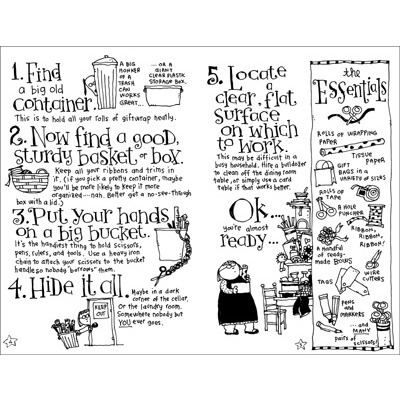 1. Find
a big old
container.
A BIG
HONKER
OF A
TRASH
CAN
WORKS
GREAT...
...OR A
GIANT
CLEAR PLASTIC
STORAGE BOX.
This is to hold all your rolls of giftwrap neatly.
2. Now find a good,
sturdy basket, or box.
Keep all your ribbons and trims in
it, (if you pick a pretty container, maybe
you'll be more likely to keep it more
organized---nah. Better get a no-see-though
box with a lid.)
3. Put your hands
on a big bucket.
It's the handiest thing to hold scissors,
pens, rulers, and tools. Use a heavy iron
chain to attach your scissors to the bucket
handle so nobody "borrows" them.
4. Hide it all.
Maybe in a dark
corner of the cellar.
Or the laundry room.
Somewhere nobody but
YOU ever goes.
KEEP
OUT
5. Locate
a
clear, flat
surface
on which
to work.
This may be difficult in a
busy household. Hire a bulldozer
to clean off the dining room
table, or simply use a card
table if that works better.
Ok...
you're almost
ready...
the
Essentials
ROLLS OF WRAPPING
PAPER
TISSUE
PAPER
GIFT
BAGS IN A
VARIETY OF SIZES
ROLLS
OF TAPE
A HOLE
PUNCHER
RIBBON,
RIBBON,
RIBBON!
A Handful
of ready-
made BOWS
WIRE
CUTTERS
TAGS
PENS
AND
MARKERS
...and MANY
pairs of
scissors!